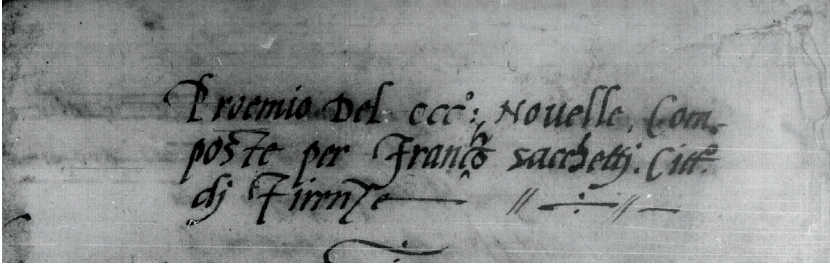 Proemio Del ccc°: Nouelle. Com-
poste per Franc.° sacchettj. Citt.°
dj Firenze